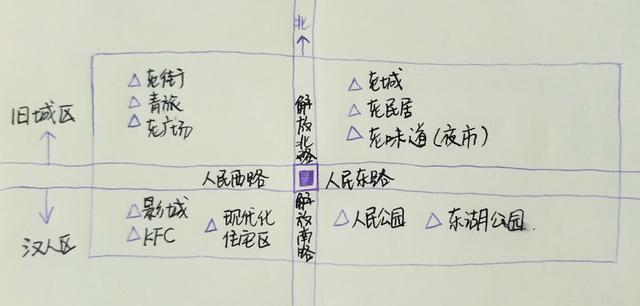 北
老街
青旅
老广场
老城
老民居
老味道(夜市)
旧城区
解放北路
人民西路
人民东路
影城
KFC
现代化
住宅区
解放南路
人民公园
东湖公园
汉人区